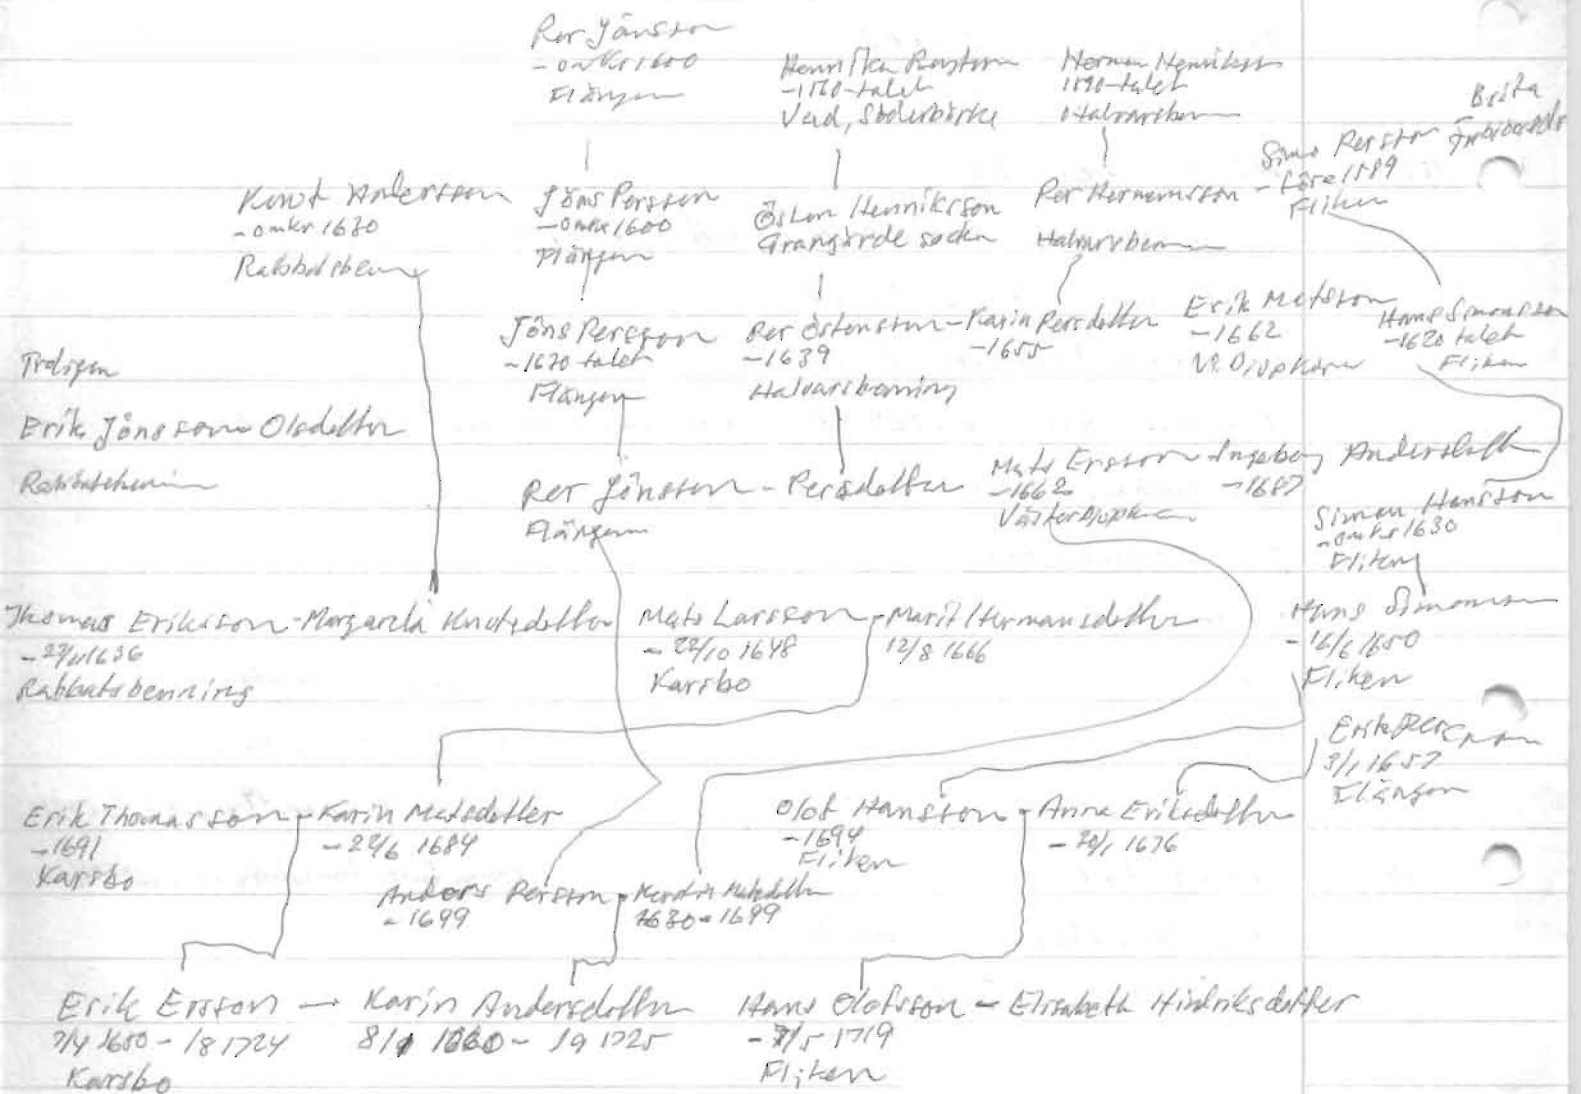 Per Jönsson
- omkr 1600
Flängen
-1560-talet
Vad, Söderbärke
Herman Henriksson
1590-talet
Halvarsben
Brita
Knut Andersson
- omkr 1630
Jöns Persson
- omkr 1600
Flängen
Östen Henriksson
Grangärde socken
Per Hermansson
Halvarsben
Simo Persson
- före 1589
Fliken
Jöns Persson
- 1620 talet
Flängen
Per Östensson - Karin Persdotter
- 1639
- 1655
Halvarsbenning
Erik Matsson
- 1662
V. Djupkärra
Hans Simonsson
- 1620 talet
Fliken
Troligen
Erik Jönsson - Olsdotter
Per Jönsson - Persdotter
Flängen
Mats Ersson - Ingeborg Andersdotter
- 1662
- 1687
Simon Hansson
- omkr 1630
Fliken
Thomas Eriksson - Margareta Knutsdotter
1636
Rabbatsbenning
Mats Larsson - Marit Hermansdotter
- 22/10 1648
12/8 1666
Karsbo
Hans Simonsson
- 16/6 1650
Fliken
Erik Persson
3/1 1657
Flängen
Erik Thomasson - Karin Matsdotter
- 1691
- 22/6 1684
Karsbo
Olof Hansson - Anna Eriksdotter
- 1694
- 20/1 1676
Fliken
Anders Persson - Kerstin Matsdotter
- 1699
1630 - 1699
Erik Ersson - Karin Andersdotter
7/4 1650 - /8 1724
8/1 1660 - /9 1725
Karsbo
Hans Olofsson - Elisabeth Hindriksdotter
- 7/5 1719
Fliken